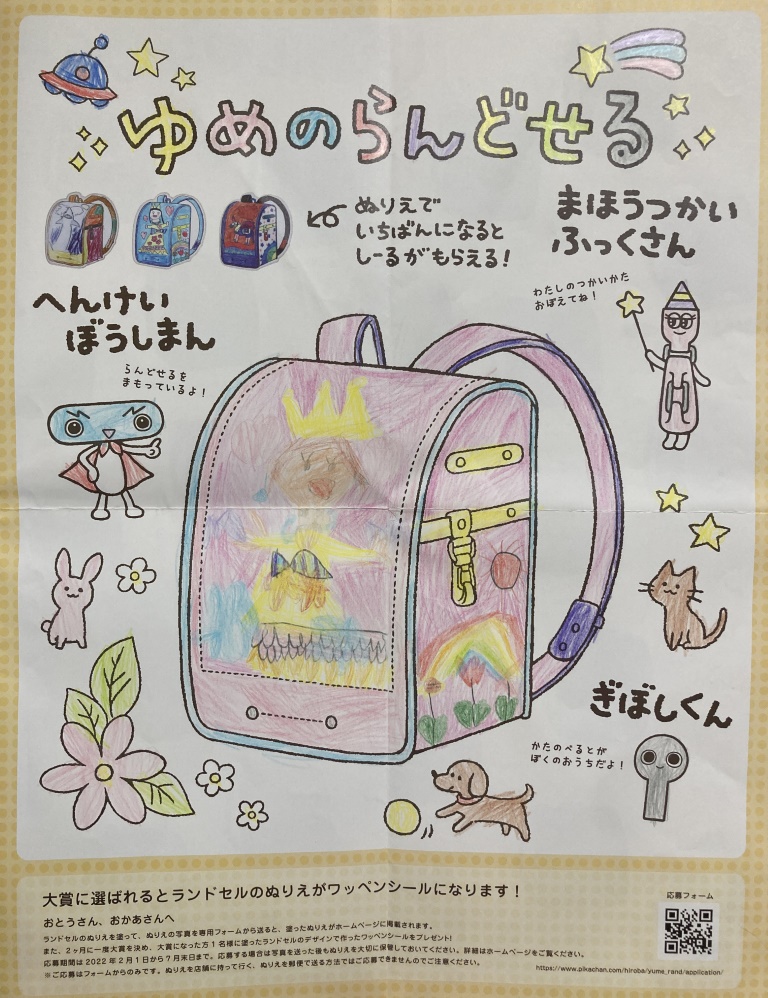 ゆめのらんどせる
ぬりえで
いちばんになると
しーるがもらえる！
まほうつかい
ふっくさん
わたしのつかいかた
おぼえてね！
へんけい
ぼうしまん
らんどせるを
まもっているよ！
ぎぼしくん
かたのべるとが
ぼくのおうちだよ！
大賞に選ばれるとランドセルのぬりえがワッペンシールになります！
おとうさん、おかあさんへ
ランドセルのぬりえを塗って、ぬりえの写真を専用フォームから送ると、塗ったぬりえがホームページに掲載されます。
また、2ヶ月に一度大賞を決め、大賞になった方1名様に塗ったランドセルのデザインで作ったワッペンシールをプレゼント！
応募期間は2022年2月1日から7月末日まで。応募する場合は写真を送った後もぬりえを大切に保管しておいてください。詳細はホームページをご覧ください。
※ご応募はフォームからのみです。ぬりえを店舗に持って行く、ぬりえを郵便で送る方法ではご応募できませんのでご注意ください。
応募フォーム
https://www.pikachan.com/hiroba/yume_rand/application/